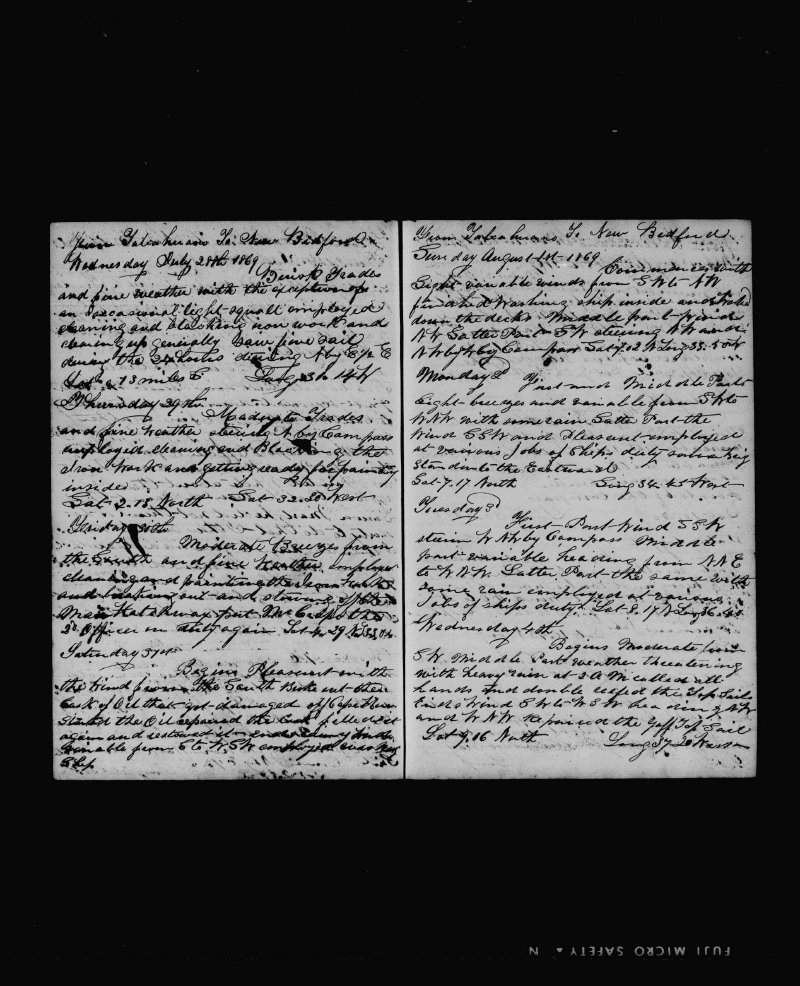 From Talcahuano To New Bedford
Wednesday July 28th 1869
Brisk Trades
and fine weather with the exception of
an occasional light squall employed
cleaning and blacking iron work and
clearing up generally Saw five sail
during the 24 hours steering N by E ½ E
13 miles Long 33 14 W
Thursday 29th
Moderate Trades
and fine weather steering N by Compass
employed cleaning and Blacking the
Iron Work and getting ready for painting
inside
Lat 2.18 North Lat 32.30 West
Friday 30th
Moderate Breezes from
the South and fine weather employed
cleaning and painting the Iron Work
and breaking out and stowing
Main Hatchway put the
3d Officer on duty again Lat 4 29 N
Saturday 31st
Begins Pleasant with
the wind from the South Broke out the
Cask of Oil that got damaged off Cape Horn
Started the Oil repaired the Cask filled it
again and restowed it ends
variable from S to W.S.W employed
Ship
From Talcahuano To New Bedford
Sunday August 1st 1869
Commences with
Light variable winds from SW to NW
finished Washing ship inside and
down the decks Middle part
Latter Part SW steering NW and
NW by W by Compass Lat 7.02 N Long 33.50 W
Monday 2d
First and Middle Parts
Light breezes and variable from SW to
WNW with some rain Latter Part the
Wind SSW and Pleasant employed
at various Jobs of Ships duty saw a Brig
Standing to the Eastward
Lat 7.17 North Long 34.45 West
Tuesday 3d
First Part Wind SSW
steering NW by Compass Middle
part variable heading from NNE
to WNW. Latter Part the same with
some rain employed at various
Jobs of ships duty. Lat 8.17 N Long 36
Wednesday 4th
Begins Moderate from
SW Middle Part weather threatening
with heavy rain at 2 AM called all
hands and double reefed the Top Sails
Ends Wind SW to WSW heading NW
and WNW Repaired the Gaff Top Sail
Lat 9.16 North Long 37